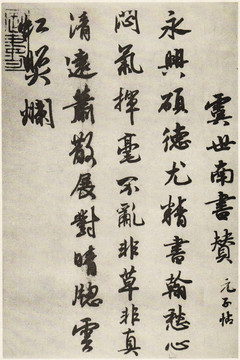 虞世南書贊 元子帖
永興碩德尤精書翰愁心
悶氣揮毫不亂非草非真
清遠蕭散展對晴牕雲
爛